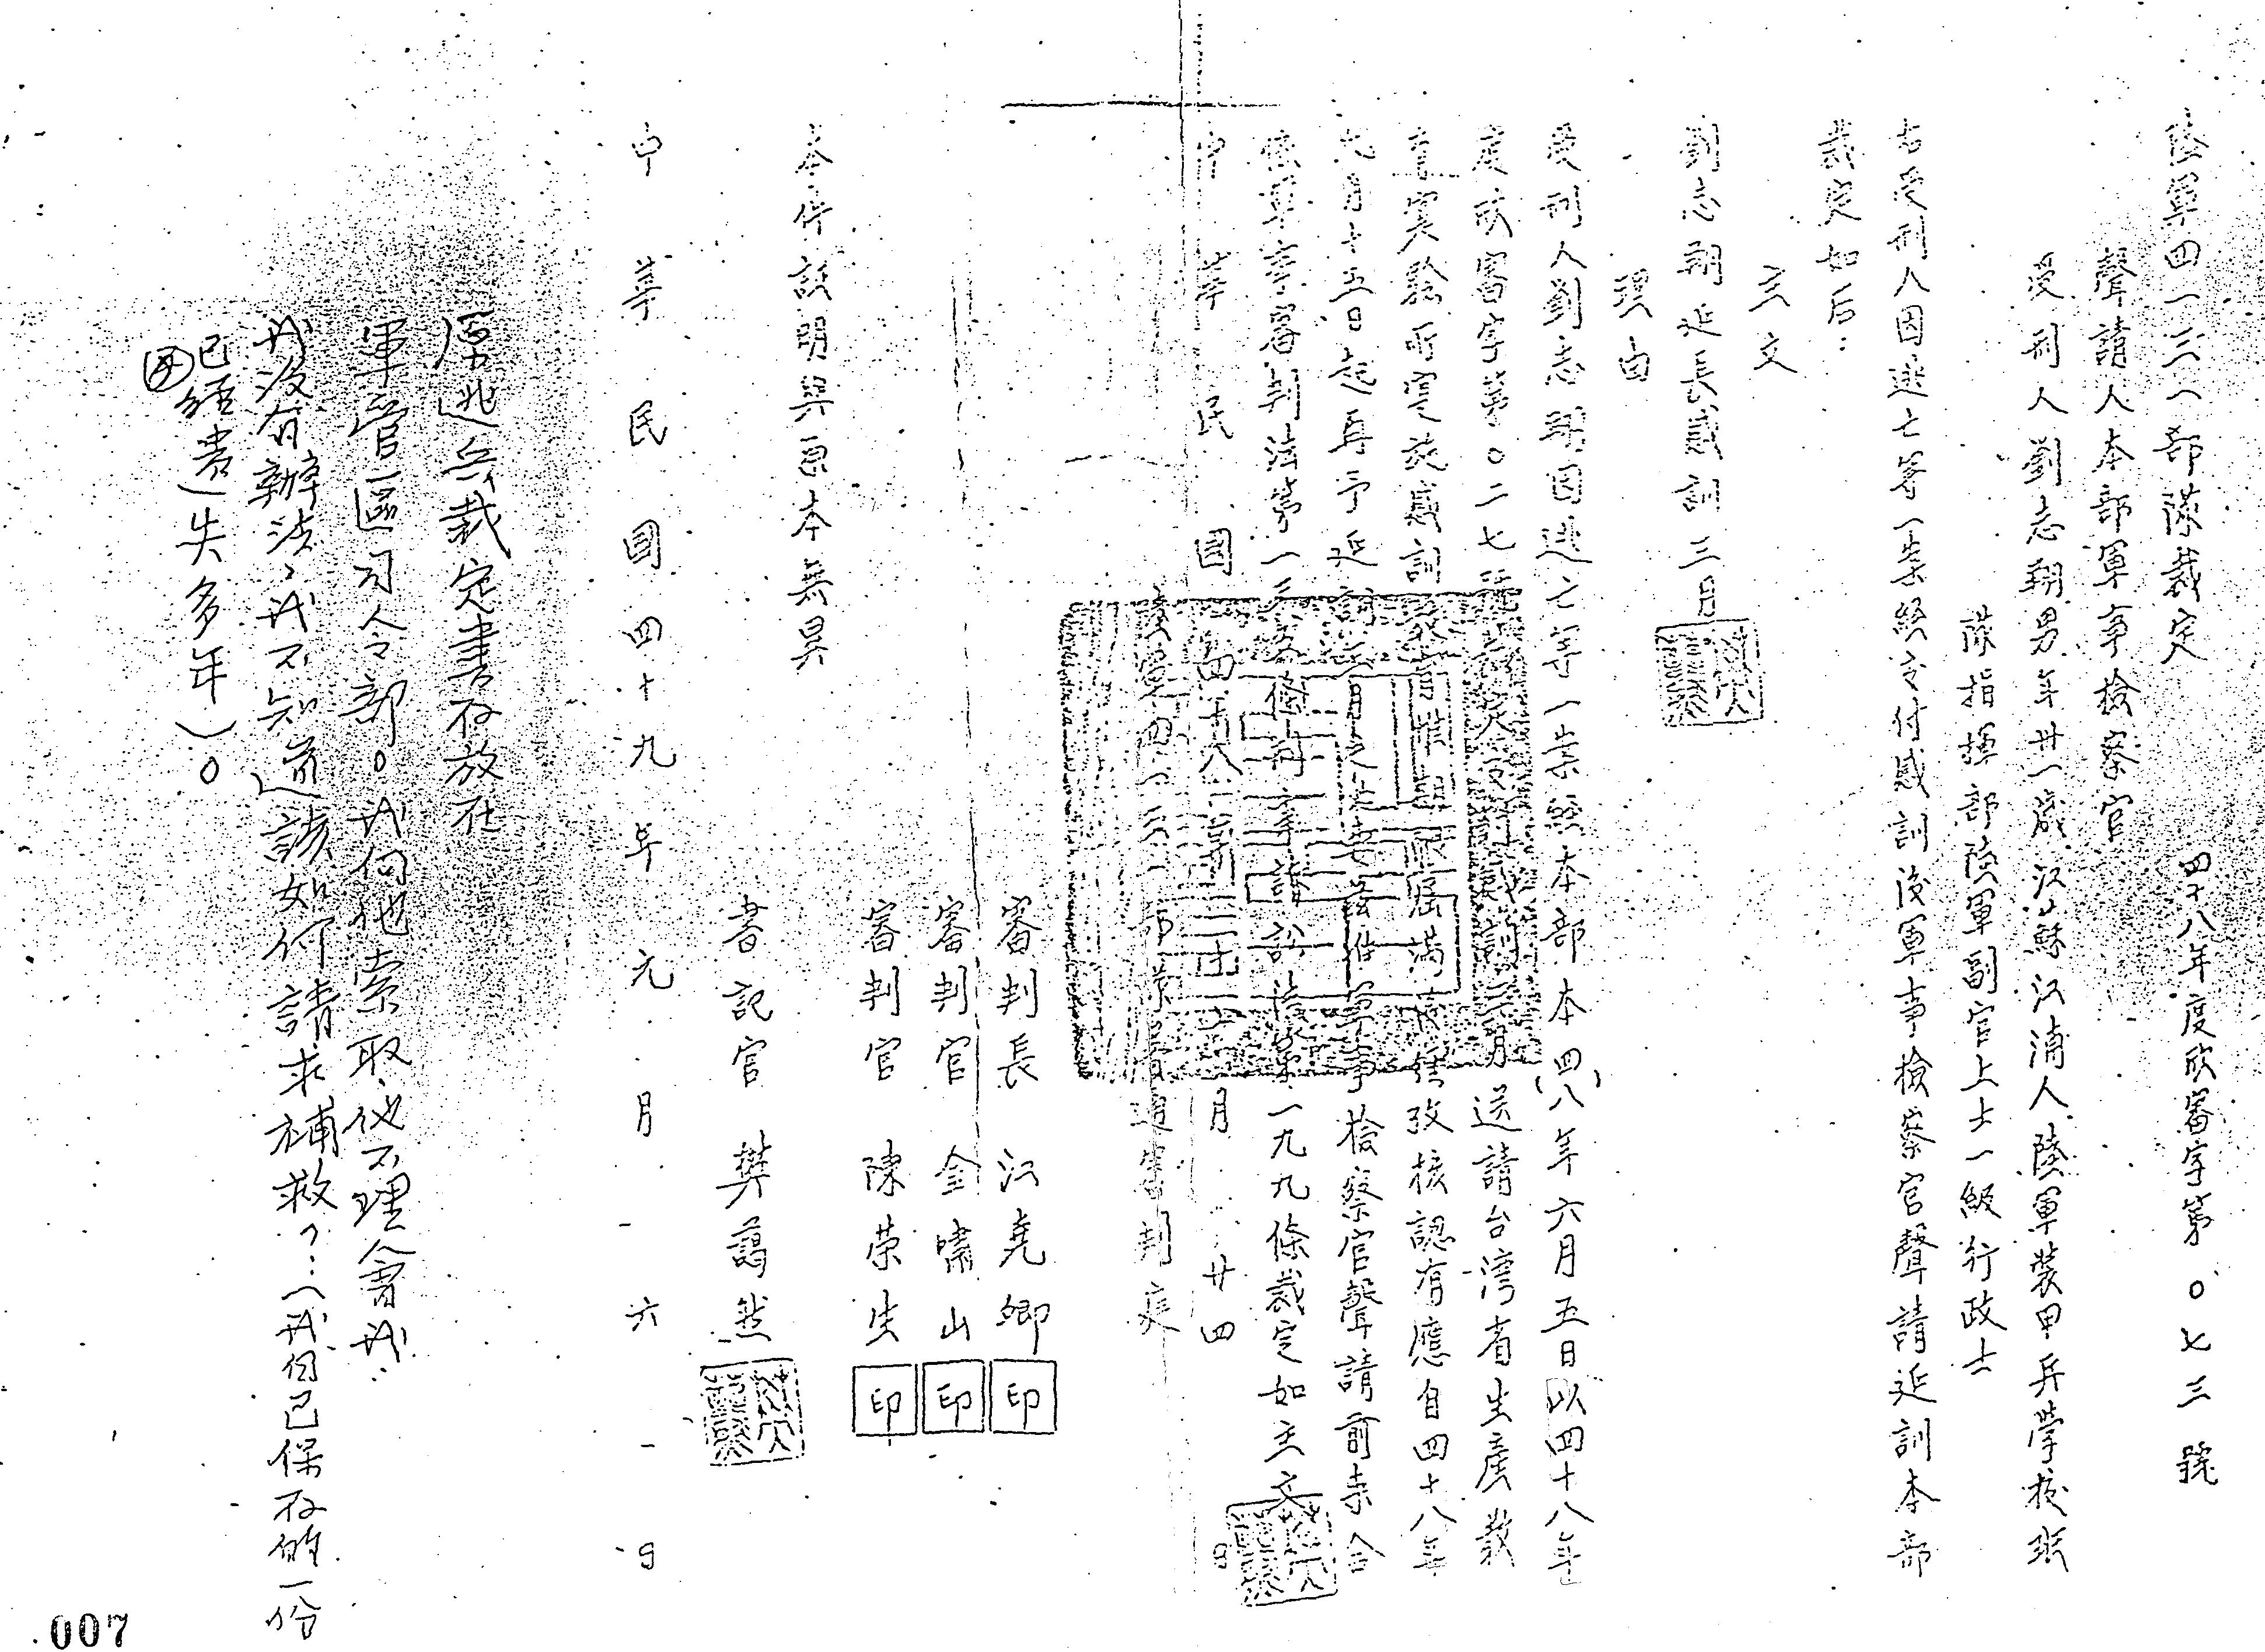 陸軍四一三一部隊裁定　四十八年度欣審字第〇七三號
聲請人本部軍事檢察官
受刑人劉志翔男年廿一歲江蘇江浦人陸軍裝甲兵學校
隊指揮部陸軍副官上士一級行政士
右受刑人因逃亡等一案經令付感訓後軍事檢察官聲請延訓本部
裁定如后：
主文
劉志翔延長感訓三月
理由
受刑人劉志翔因逃亡等一案經本部本(四八)年六月五日以四十八年
度欣審字第〇二七號裁定感訓三月送請台灣省生產教
育實驗所實施感訓茲官佐趙屆滿考核認有應自四十八年
九月十五日起再予延訓三月之必要茲准軍事檢察官聲請前來合
依軍事審判法第一條刑事訴訟法第一九九條裁定如主文
中華民國四十八年十二月廿四日
陸軍四一三一部隊普通審判庭
審判長　江堯卿　印
審判官　金嘯山　印
審判官　陳榮生　印
本件證明與原本無異
書記官　樊藹然
中華民國四十九年元月六日
原逃兵裁定書存放在
軍管區司令部。我向他索取、他不理會我：
我沒有辦法、我不知道該如何請求補救？：（我自己保存的一份
已經遺失多年）。
007